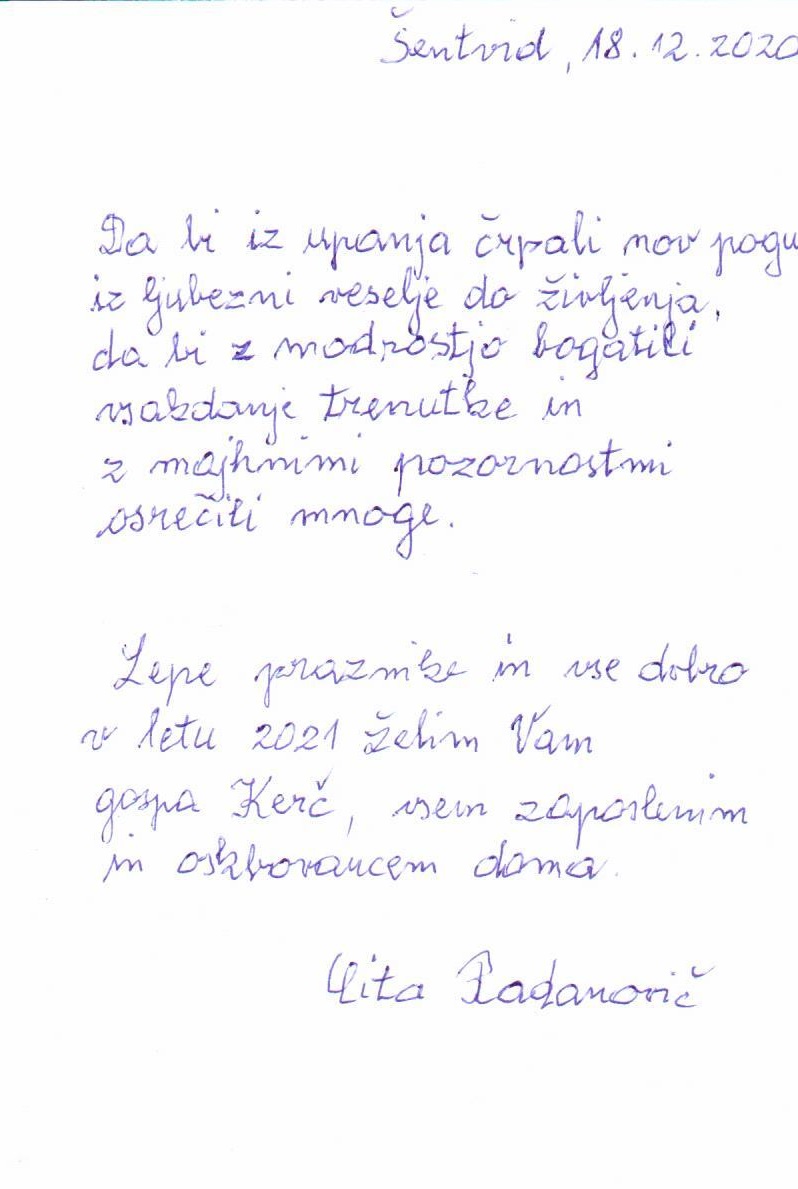 Šentvid, 18.12.2020
Da bi iz upanja črpali nov pogu
iz ljubezni veselje do življenja,
da bi z modrostjo bogatili
vsakdanje trenutke in
z majhnimi pozornostmi
osrečili mnoge.
Lepe praznike in vse dobro
v letu 2021 želim Vam
gospa Kerč, vsem zaposlenim
in oskbovancem doma.
Radanovič